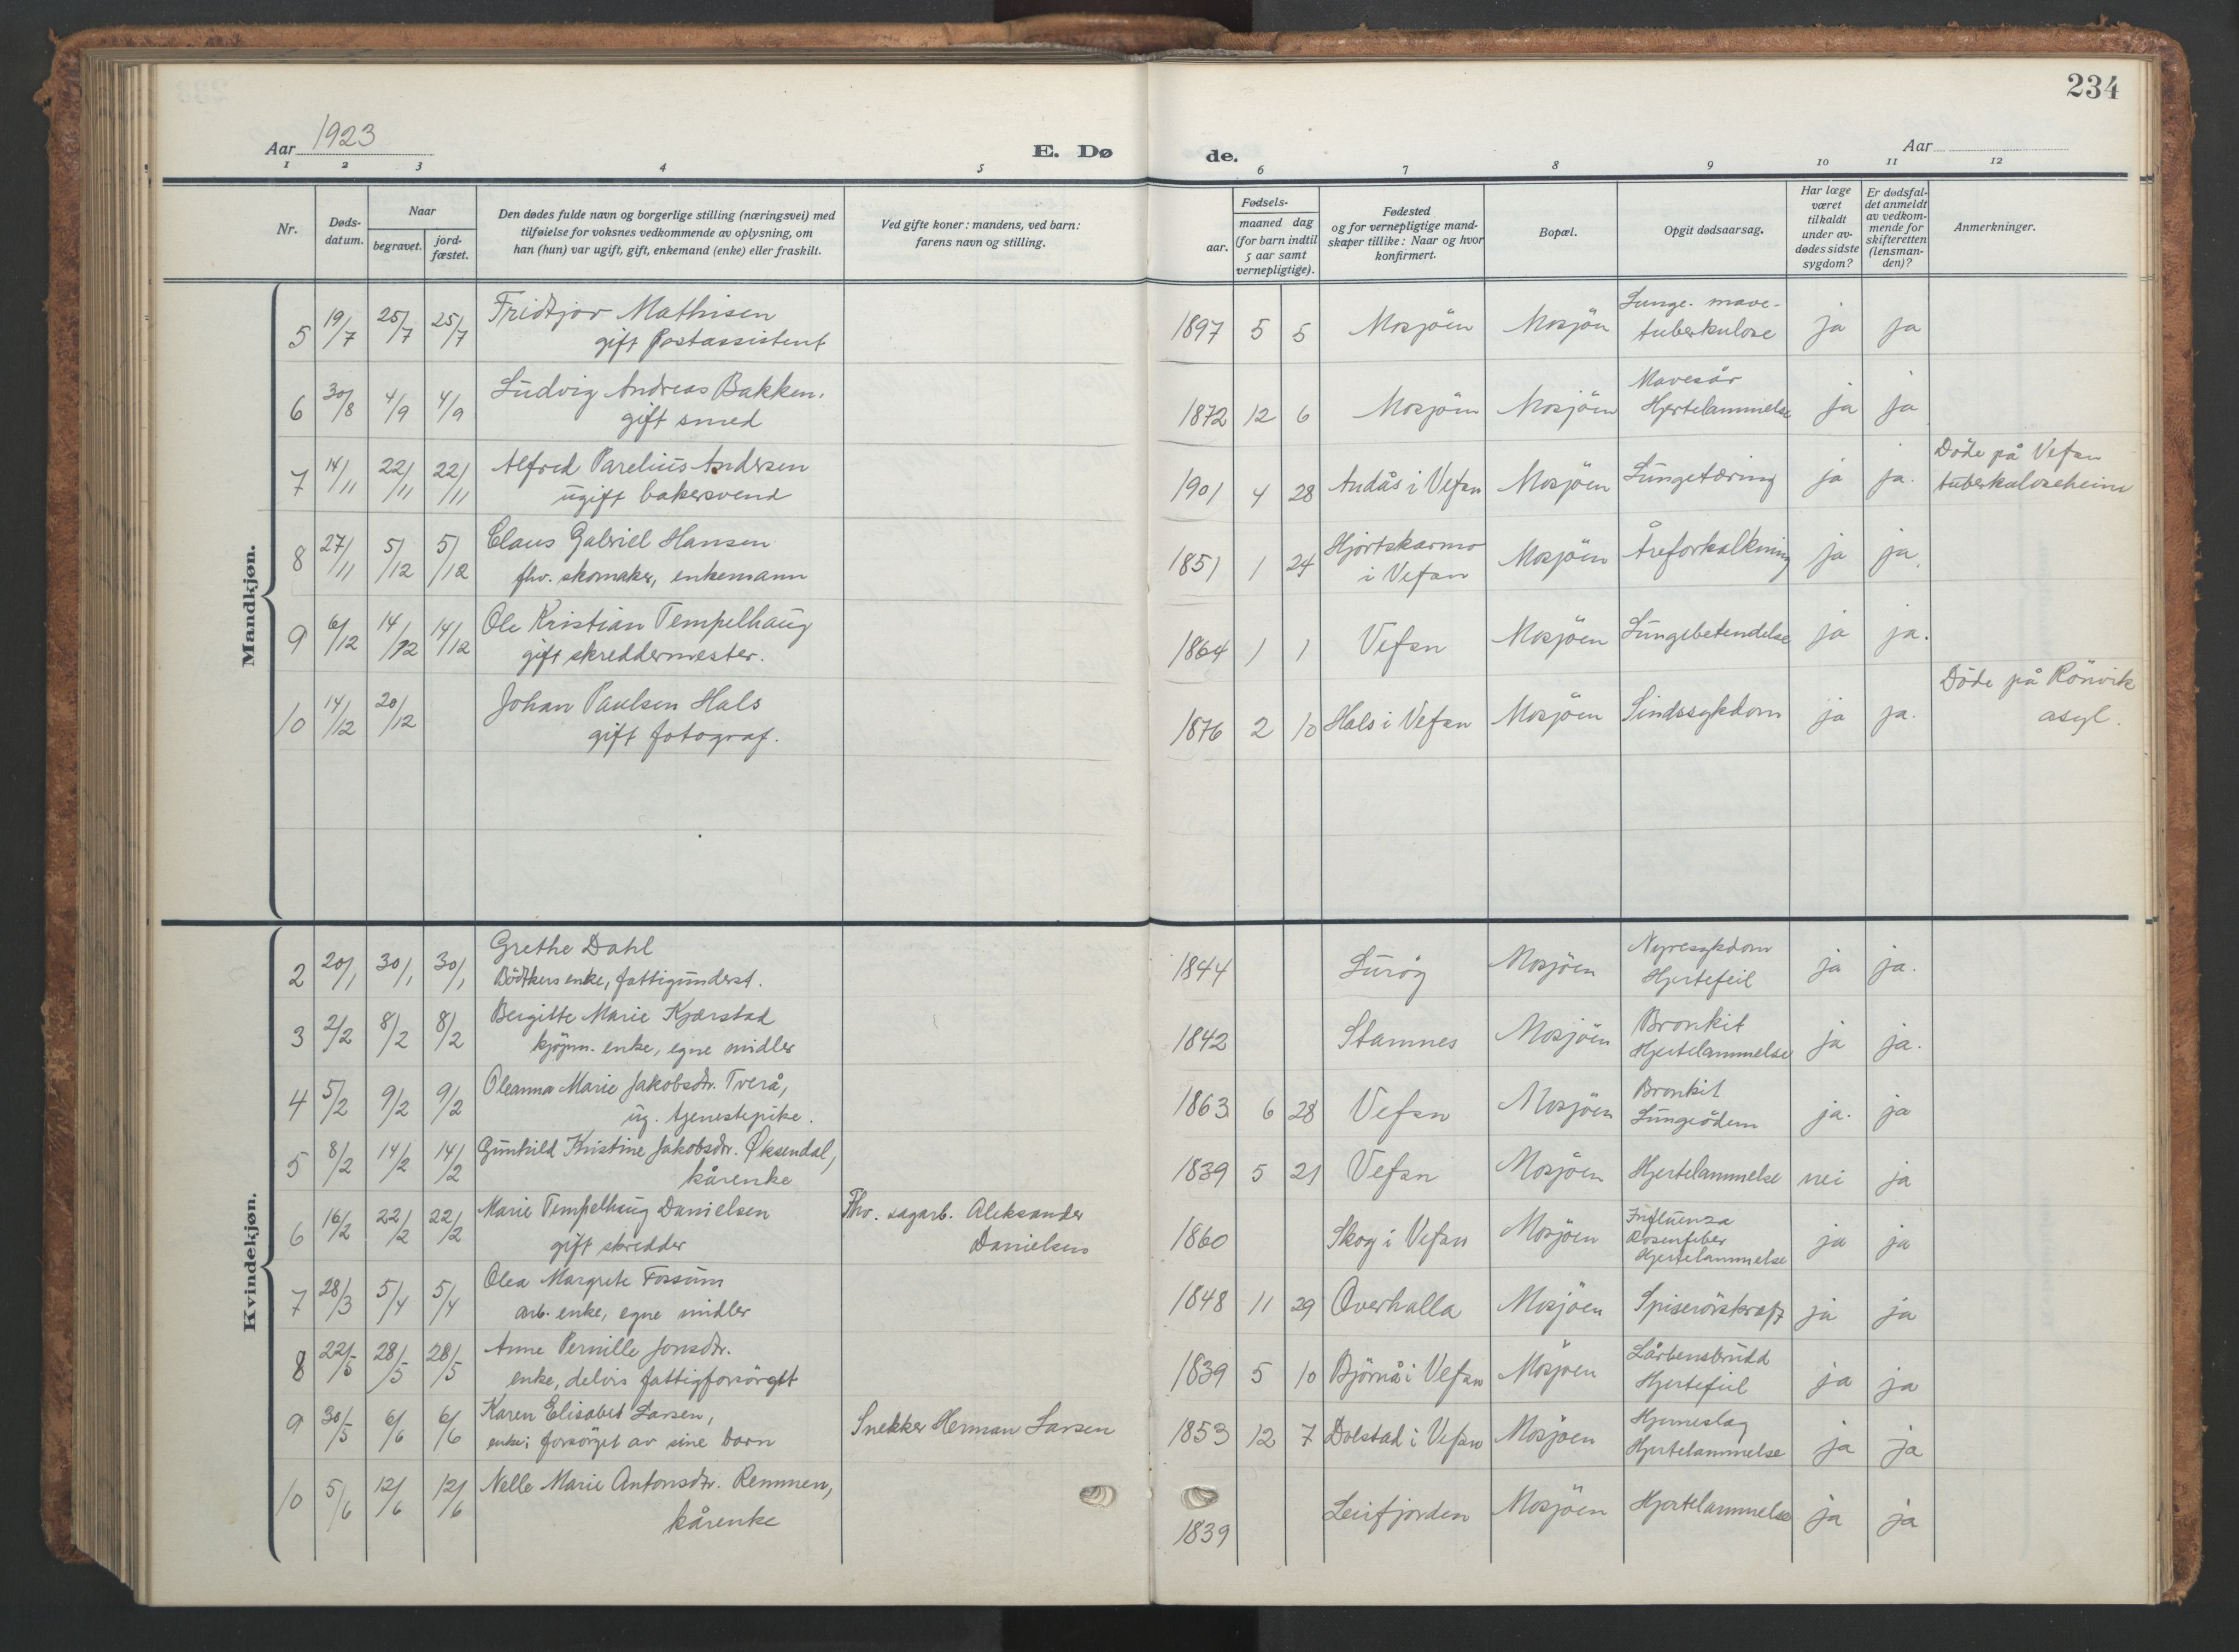 234
Aar 1923
E. Dø
de.
Aar
1 2 3 4 5 6 7 8 9 10 11 12
Nr.
Døds-
datum.
Naar
begravet.
jord-
fæstet.
Den dødes fulde navn og borgerlige stilling (næringsvei) med
tilføielse for voksnes vedkommende av oplysning, om
han (hun) var ugift, gift, enkemand (enke) eller fraskilt.
Ved gifte koner: mandens, ved barn:
farens navn og stilling.
Fødsels-
aar.
maaned dag
(for barn indtil
5 aar samt
vernepligtige).
Fødested
og for vernepligtige mand-
skaper tillike: Naar og hvor
konfirmert.
Bopæl.
Opgit dødsaarsag.
Har læge
været
tilkaldt
under av-
dødes sidste
sygdom?
Er dødsfal-
det anmeldt
av vedkom-
mende for
skifteretten
(lensman-
den)?
Anmerkninger.
Mandkjøn.
5 19/7 25/7 25/7 Fridtjov Mathisen
gift Postassistent
1897 5 5 Mosjöen Mosjöen Lunge- mave-
tuberkulose ja ja
6 30/8 4/9 4/9 Ludvig Andreas Bakken.
gift smed
1872 12 6 Mosjöen Mosjöen Mavesår
Hjertelammelse ja ja
7 14/11 22/11 22/11 Alfred Parelius Andersen
ugift bakersvend
1901 4 28 Andås i Vefsn Mosjöen Lungetæring ja ja.
Döde på Vefsn
tuberkuloseheim
8 27/11 5/12 5/12 Claus Gabriel Hansen
fhv. skomaker, enkemann
1851 1 24 Hjortskarmo
i Vefsn Mosjöen Åreforkalkning ja ja.
9 6/12 14/12 14/12 Ole Kristian Tempelhaug
gift skreddermester.
1864 1 1 Vefsn Mosjöen Lungebetendelse ja ja.
10 14/12 20/12 Johan Paulsen Hals
gift fotograf.
1876 2 10 Hals i Vefsn Mosjöen Sindssykdom ja ja.
Döde på Rönvik
asyl.
Kvindekjøn.
2 20/1 30/1 30/1 Grethe Dahl
Bödtkers enke, fattigunderst.
1844 Luröy Mosjöen Nyresykdom
Hjertefeil ja ja.
3 2/2 8/2 8/2 Bergitte Marie Kjærstad
kjöpm. enke, egne midler
1842 Stamnes Mosjöen Bronkit
Hjertelammelse ja ja.
4 5/2 9/2 9/2 Oleanna Marie Jakobsdtr. Tverå,
ug. tjenestepike.
1863 6 28 Vefsn Mosjöen Bronkit
Lungeödem ja. ja
5 8/2 14/2 14/2 Gunhild Kristine Jakobsdtr. Øksendal,
kårenke
1839 5 21 Vefsn Mosjöen Hjertelammelse nei ja
6 16/2 22/2 22/2 Marie Tempelhaug Danielsen
gift skredder
Fhv. sagarb. Aleksander
Danielsen
1860 Skog i Vefsn Mosjöen Influensa
Rosenfeber
Hjertelammelse ja ja
7 28/3 5/4 5/4 Olea Margrete Fossum
arb. enke, egne midler
1848 11 29 Overhalla Mosjöen Spiserörskræft ja ja
8 22/5 28/5 28/5 Anne Pernille Jonsdtr.
enke, delvis fattigforsörget
1839 5 10 Björnå i Vefsn Mosjöen Lårbensbrudd
Hjertefeil ja ja
9 30/5 6/6 6/6 Karen Elisabet Larsen,
enke; forsörget av sine barn
Snekker Herman Larsen
1853 12 7 Dolstad i Vefsn Mosjöen Hjerneslag
Hjertelammelse ja ja
10 5/6 12/6 12/6 Nelle Marie Antonsdtr. Remmen,
kårenke
1839 Leirfjorden Mosjöen Hjertelammelse ja ja